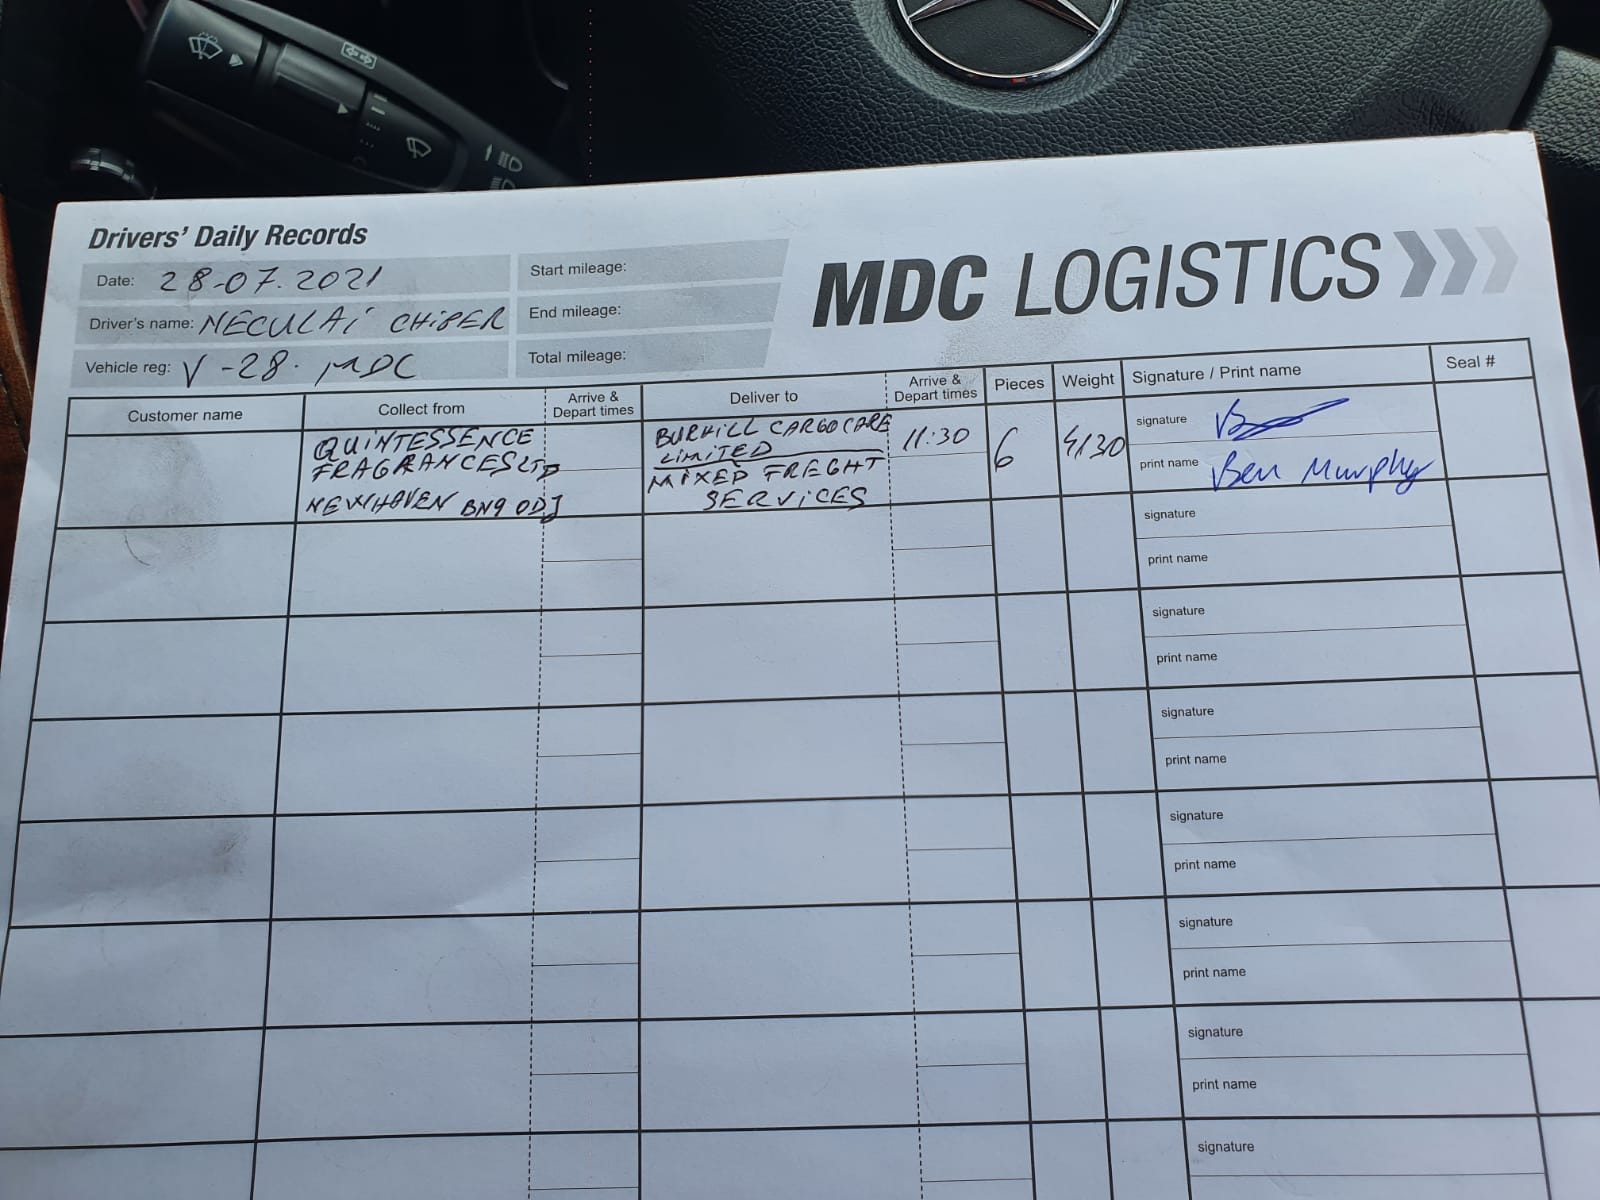 Drivers' Daily Records
MDC LOGISTICS
Date: 28-07.2021
Start mileage:
Driver's name: NECULAI CHIPER
End mileage:
Vehicle reg: V-28. MDC
Total mileage:
Customer name
Collect from
Arrive &
Depart times
Deliver to
Arrive &
Depart times
Pieces
Weight
Signature / Print name
Seal #
QUINTESSENCE
FRAGRANCES LTD
NEWHAVEN BN9 0DJ
BURHILL CARGOCARE
LIMITED
MIXED FREGHT
SERVICES
11:30
6
signature
print name Ben Murphy
signature
print name
signature
print name
signature
print name
signature
print name
signature
print name
signature
print name
signature